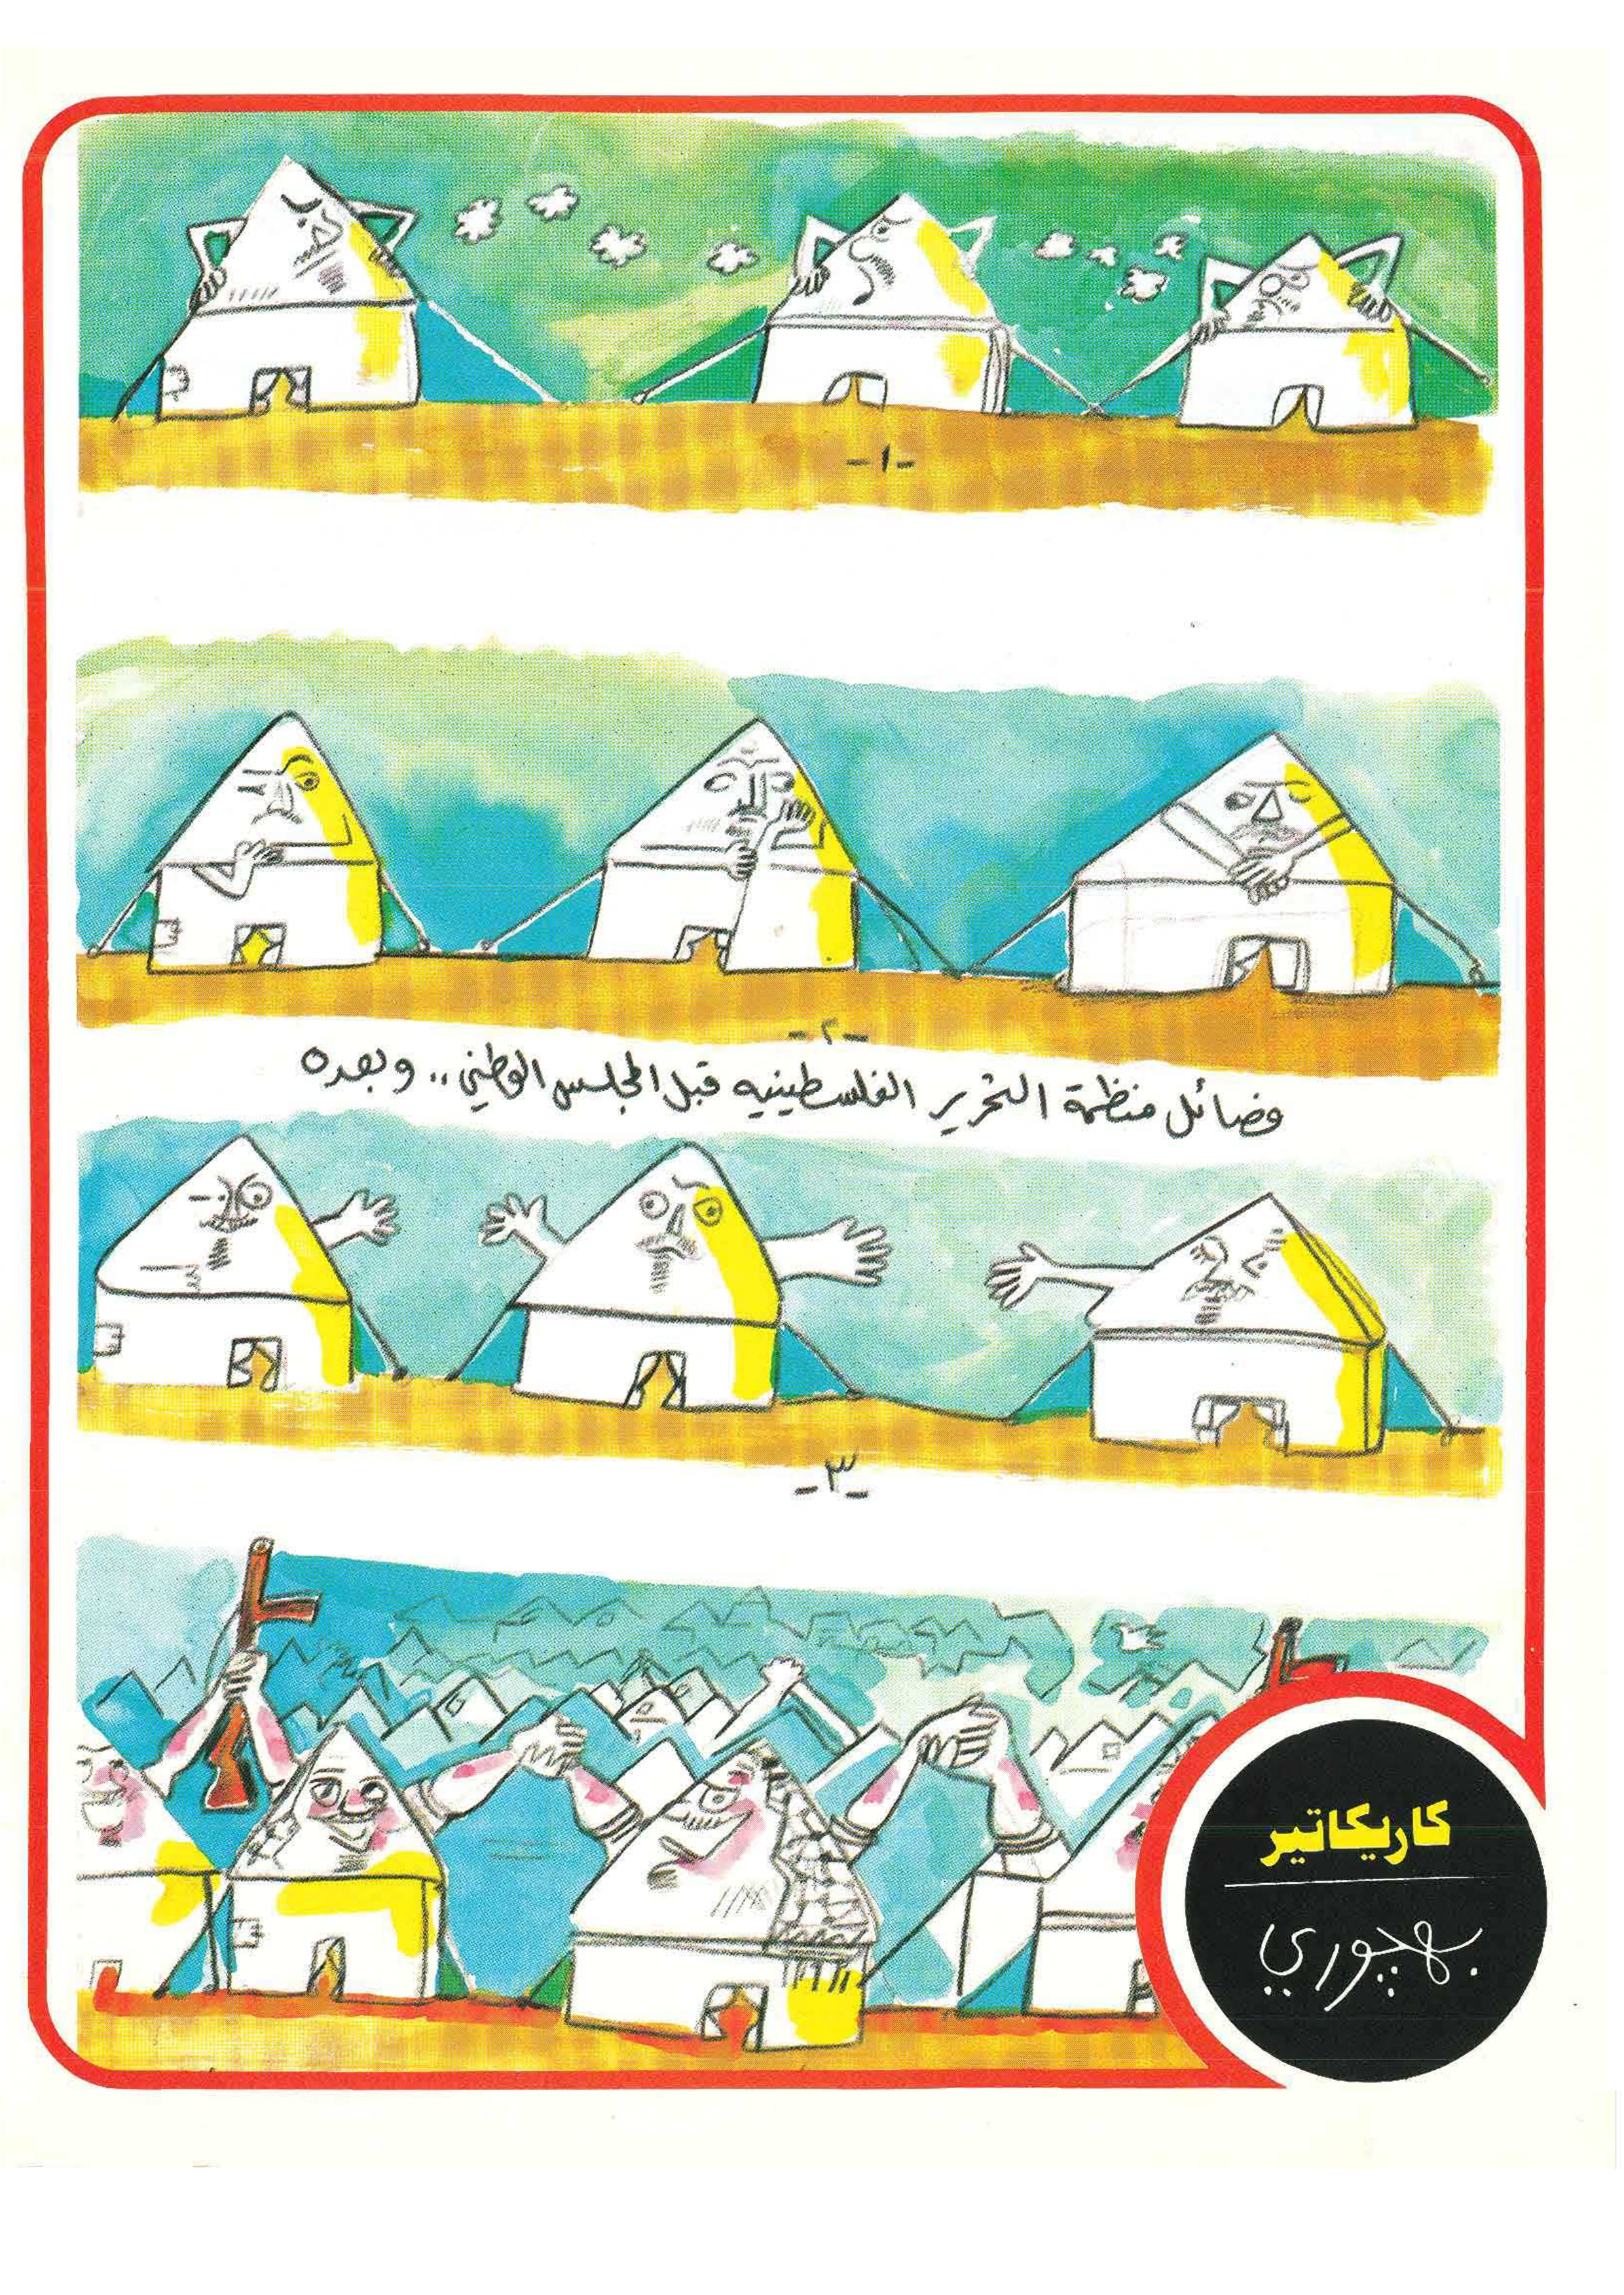 -١-
-٢-
فصائل منظمة التحرير الفلسطينيه قبل المجلس الوطني .. وبعده
-٣-
كاريكاتير
بهچوري